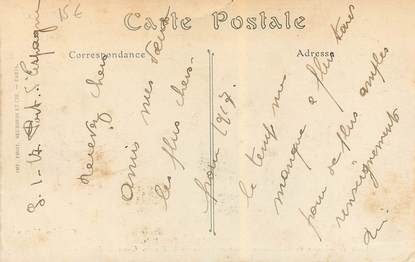 15€
Carte Postale
Correspondance
Adresse
Recevez chers
amis mes vœux
les plus chers
pour 1917.
le temps me
manque à plus tard
pour de plus amples
renseignements